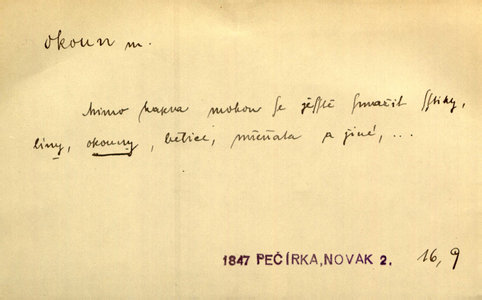 okoun m.
Mimo kapra mohou se ještě smažit štiky,
líny, okouny, bělice, mřeňata a jiné, ...
1847 PEČÍRKA, NOVAK 2. 16, 9